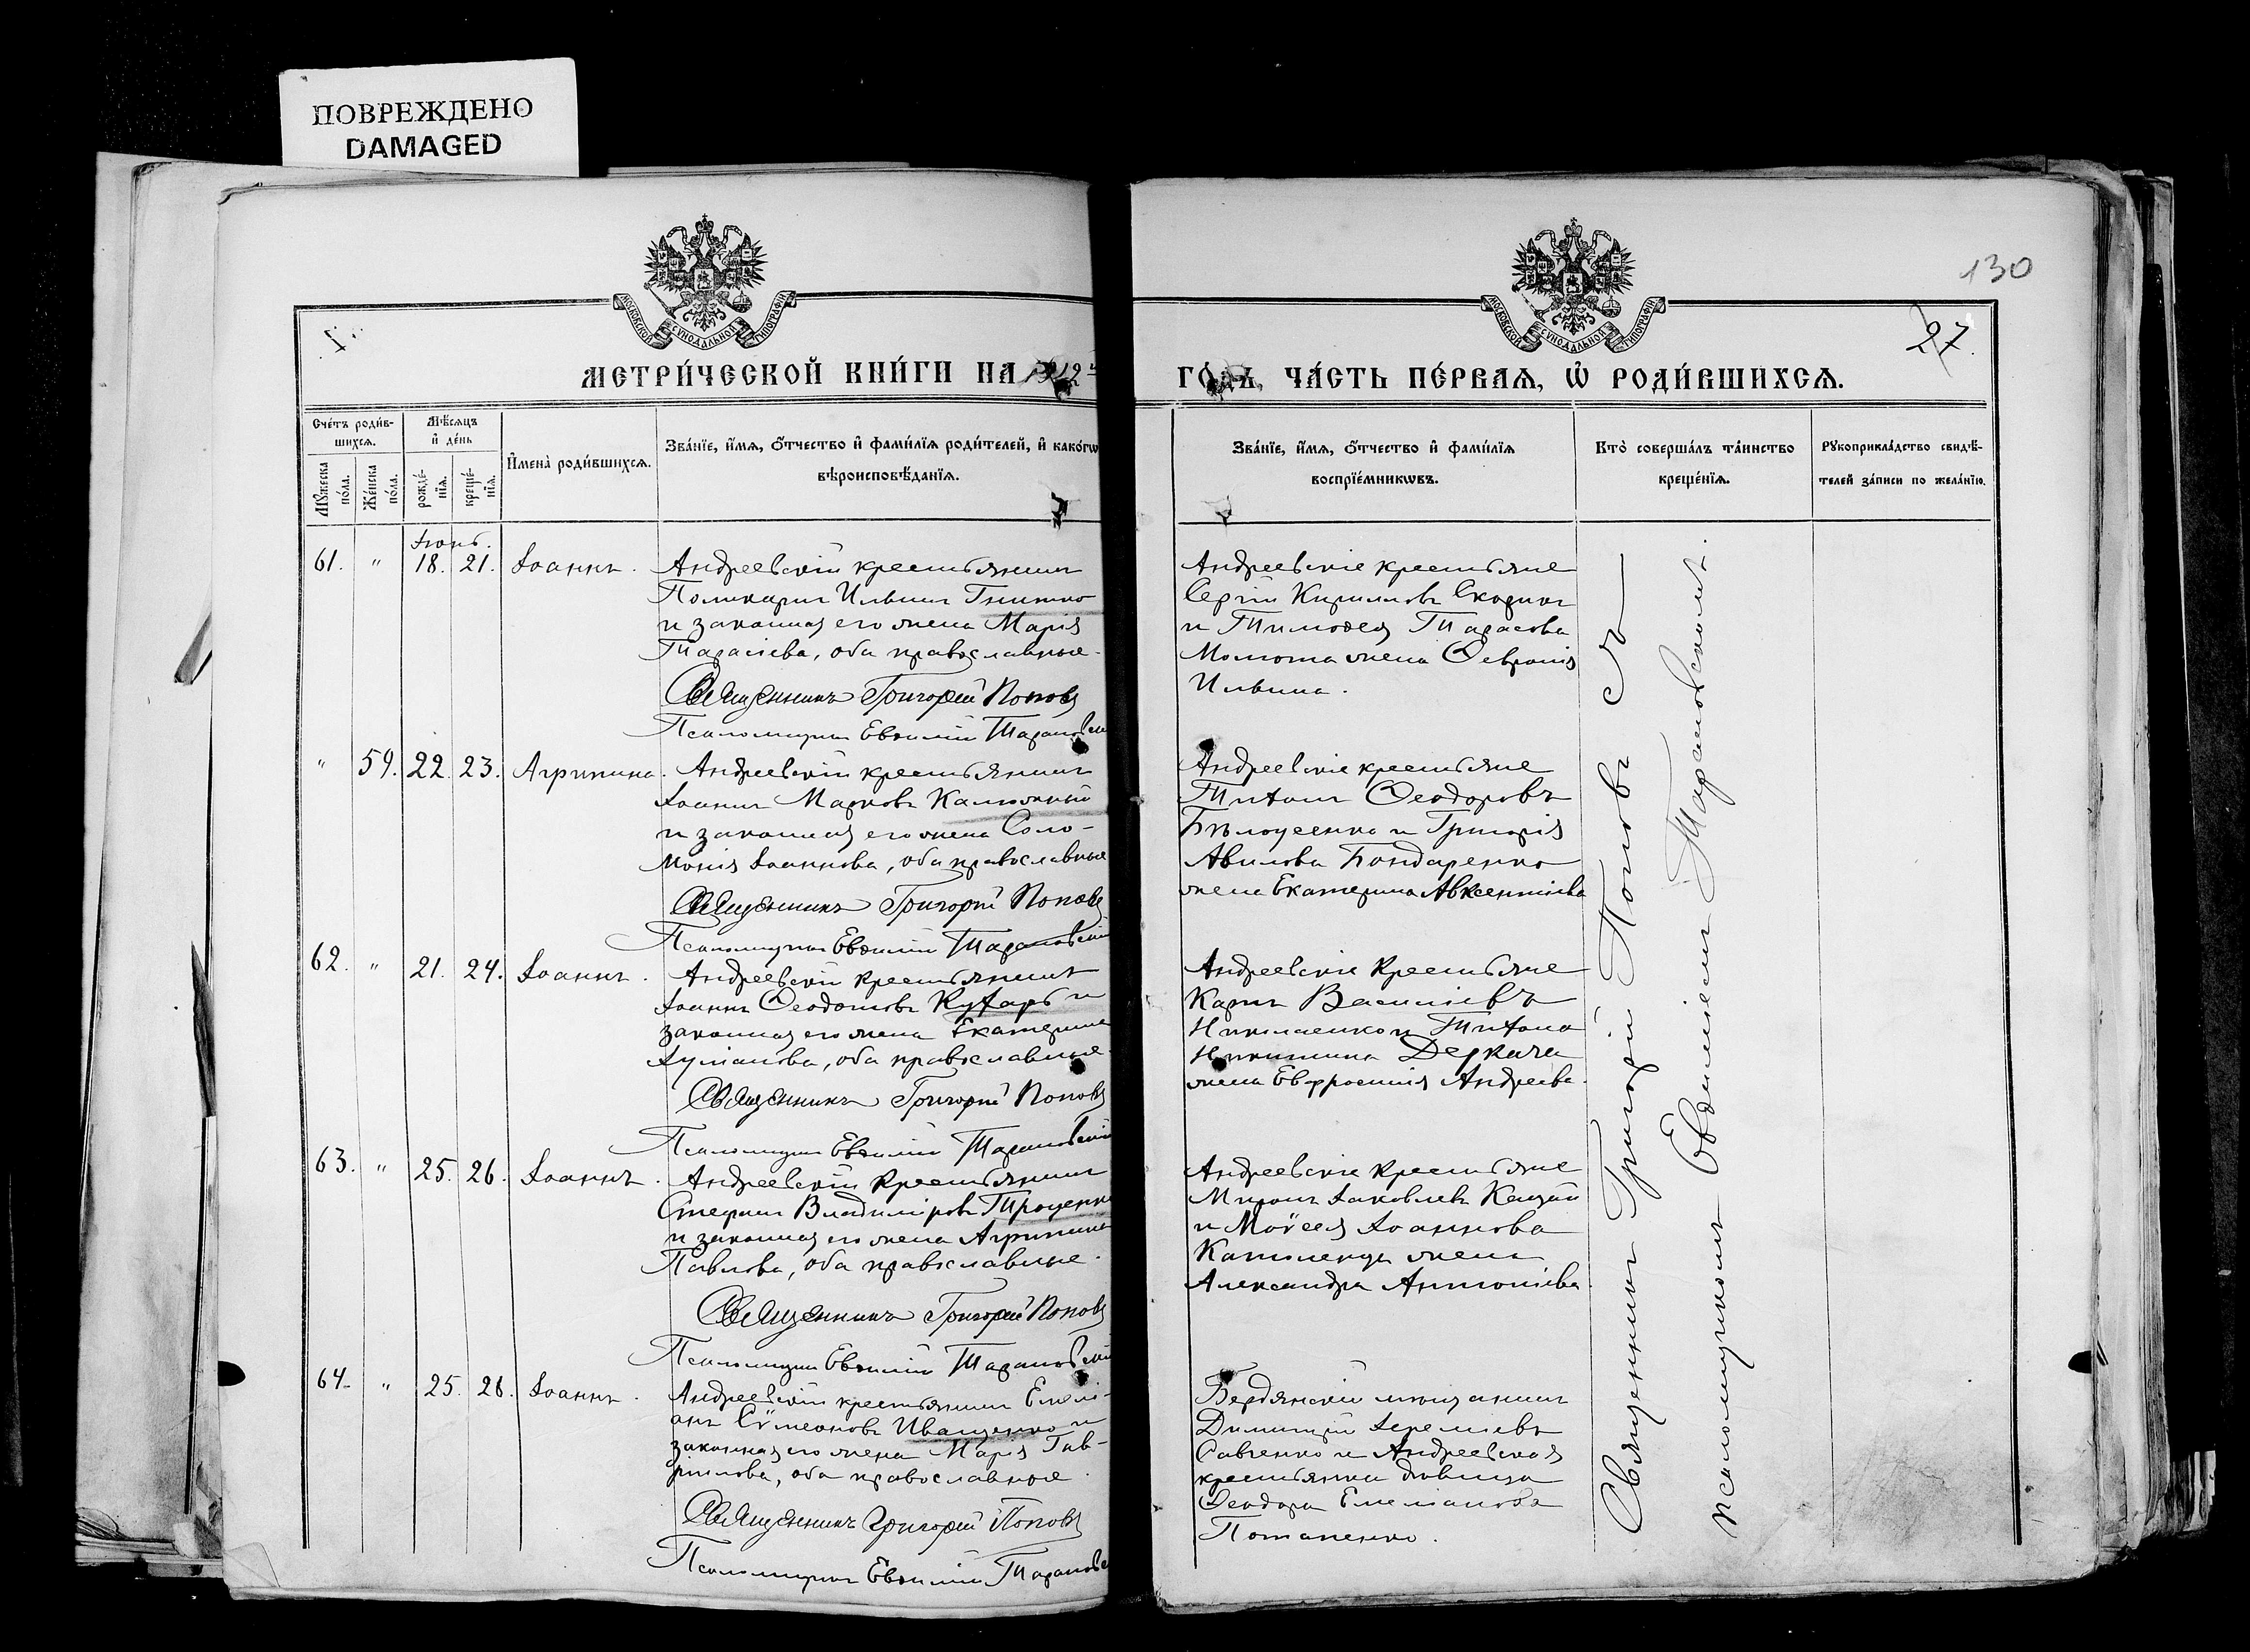 ПОВРЕЖДЕНО
DAMAGED
МОСКОВСКОЙ СУНОДАЛЬНОЙ ТИПОГРАФІИ
МОСКОВСКОЙ СУНОДАЛЬНОЙ ТИПОГРАФІИ
130
I.
27.
МЕТРИ́ЧЕСКОЙ КНИ́ГИ НА 1912й
ГО́ДЪ, ЧА́СТЬ ПЕ́РВАѦ, Ѡ҆ РОДИ́ВШИХСѦ.
Сче́тъ роди́в-
шихсѧ.
Мꙋ́жеска по́ла.
Же́нска по́ла.
Мѣ́сѧцъ
и҆ де́нь
рожде́-
нїѧ.
креще́-
нїѧ.
И҆мена̀ роди́вшихсѧ.
Зва́нїе, и҆́мѧ, ѻ҆́тчество и҆ фами́лїѧ роди́телей, и҆ како́гѡ
вѣроисповѣ́данїѧ.
Зва́нїе, и҆́мѧ, ѻ҆́тчество и҆ фами́лїѧ
воспрїе́мникѡвъ.
Кто̀ соверша́лъ та́инство
креще́нїѧ.
Рꙋкоприкла́дство свидѣ́-
телей за́писи по жела́нїю.
Іюнь.
61. " 18. 21. Іоаннъ.
Андреевскій крестьянинъ
Поликарпъ Ильинъ Гнитко
и законная его жена Марія
Тарасіева, оба православные.
Священникъ Григорій Поповъ
Псаломщикъ Евѳимій Тарановскій
Андреевскіе крестьяне
Сергій Кирилловъ Скорикъ
и Тимоѳея Тарасова
Момота жена Февронія
Ильина.
" 59. 22. 23. Агрипина.
Андреевскій крестьянинъ
Іоаннъ Марковъ Калюжный
и законная его жена Соло-
монія Іоаннова, оба православные
Священникъ Григорій Поповъ
Псаломщикъ Евѳимій Тарановскій
Андреевскіе крестьяне
Титъ Ѳеодоровъ
Бѣлоусенко и Григорія
Авилова Бондаренко
жена Екатерина Авксентіева
62. " 21. 24. Іоаннъ.
Андреевскій крестьянинъ
Іоаннъ Ѳеодотовъ Кухарь и
законная его жена Екатерина
Іуліанова, оба православные.
Священникъ Григорій Поповъ
Псаломщикъ Евѳимій Тарановскій
Андреевскіе крестьяне
Карпъ Василіевъ
Николаенко и Тита
Никитина Деркача
жена Евфросинія Андреева.
63. " 25. 26. Іоаннъ.
Андреевскій крестьянинъ
Стефанъ Владиміровъ Троценко
и законная его жена Агрипина
Павлова, оба православные.
Священникъ Григорій Поповъ
Псаломщикъ Евѳимій Тарановскій
Андреевскіе крестьяне
Миронъ Іаковлевъ Кацай
и Моѵсея Іоаннова
жена
Александра Антоніева.
64. " 25. 26. Іоаннъ.
Андреевскій крестьянинъ Емелі-
анъ Сѵмеоновъ Иващенко и
законная его жена Марія Гав-
ріилова, оба православные.
Священникъ Григорій Поповъ
Псаломщикъ Евѳимій Тарановскій
Бердянскій мѣщанинъ
Димитрій Іереміевъ
Савченко и Андреевская
крестьянка дѣвица
Ѳеодора Емеліанова
Потапенко.
Священникъ Григорій Поповъ съ
псаломщикомъ Евѳиміемъ Тарановскимъ.